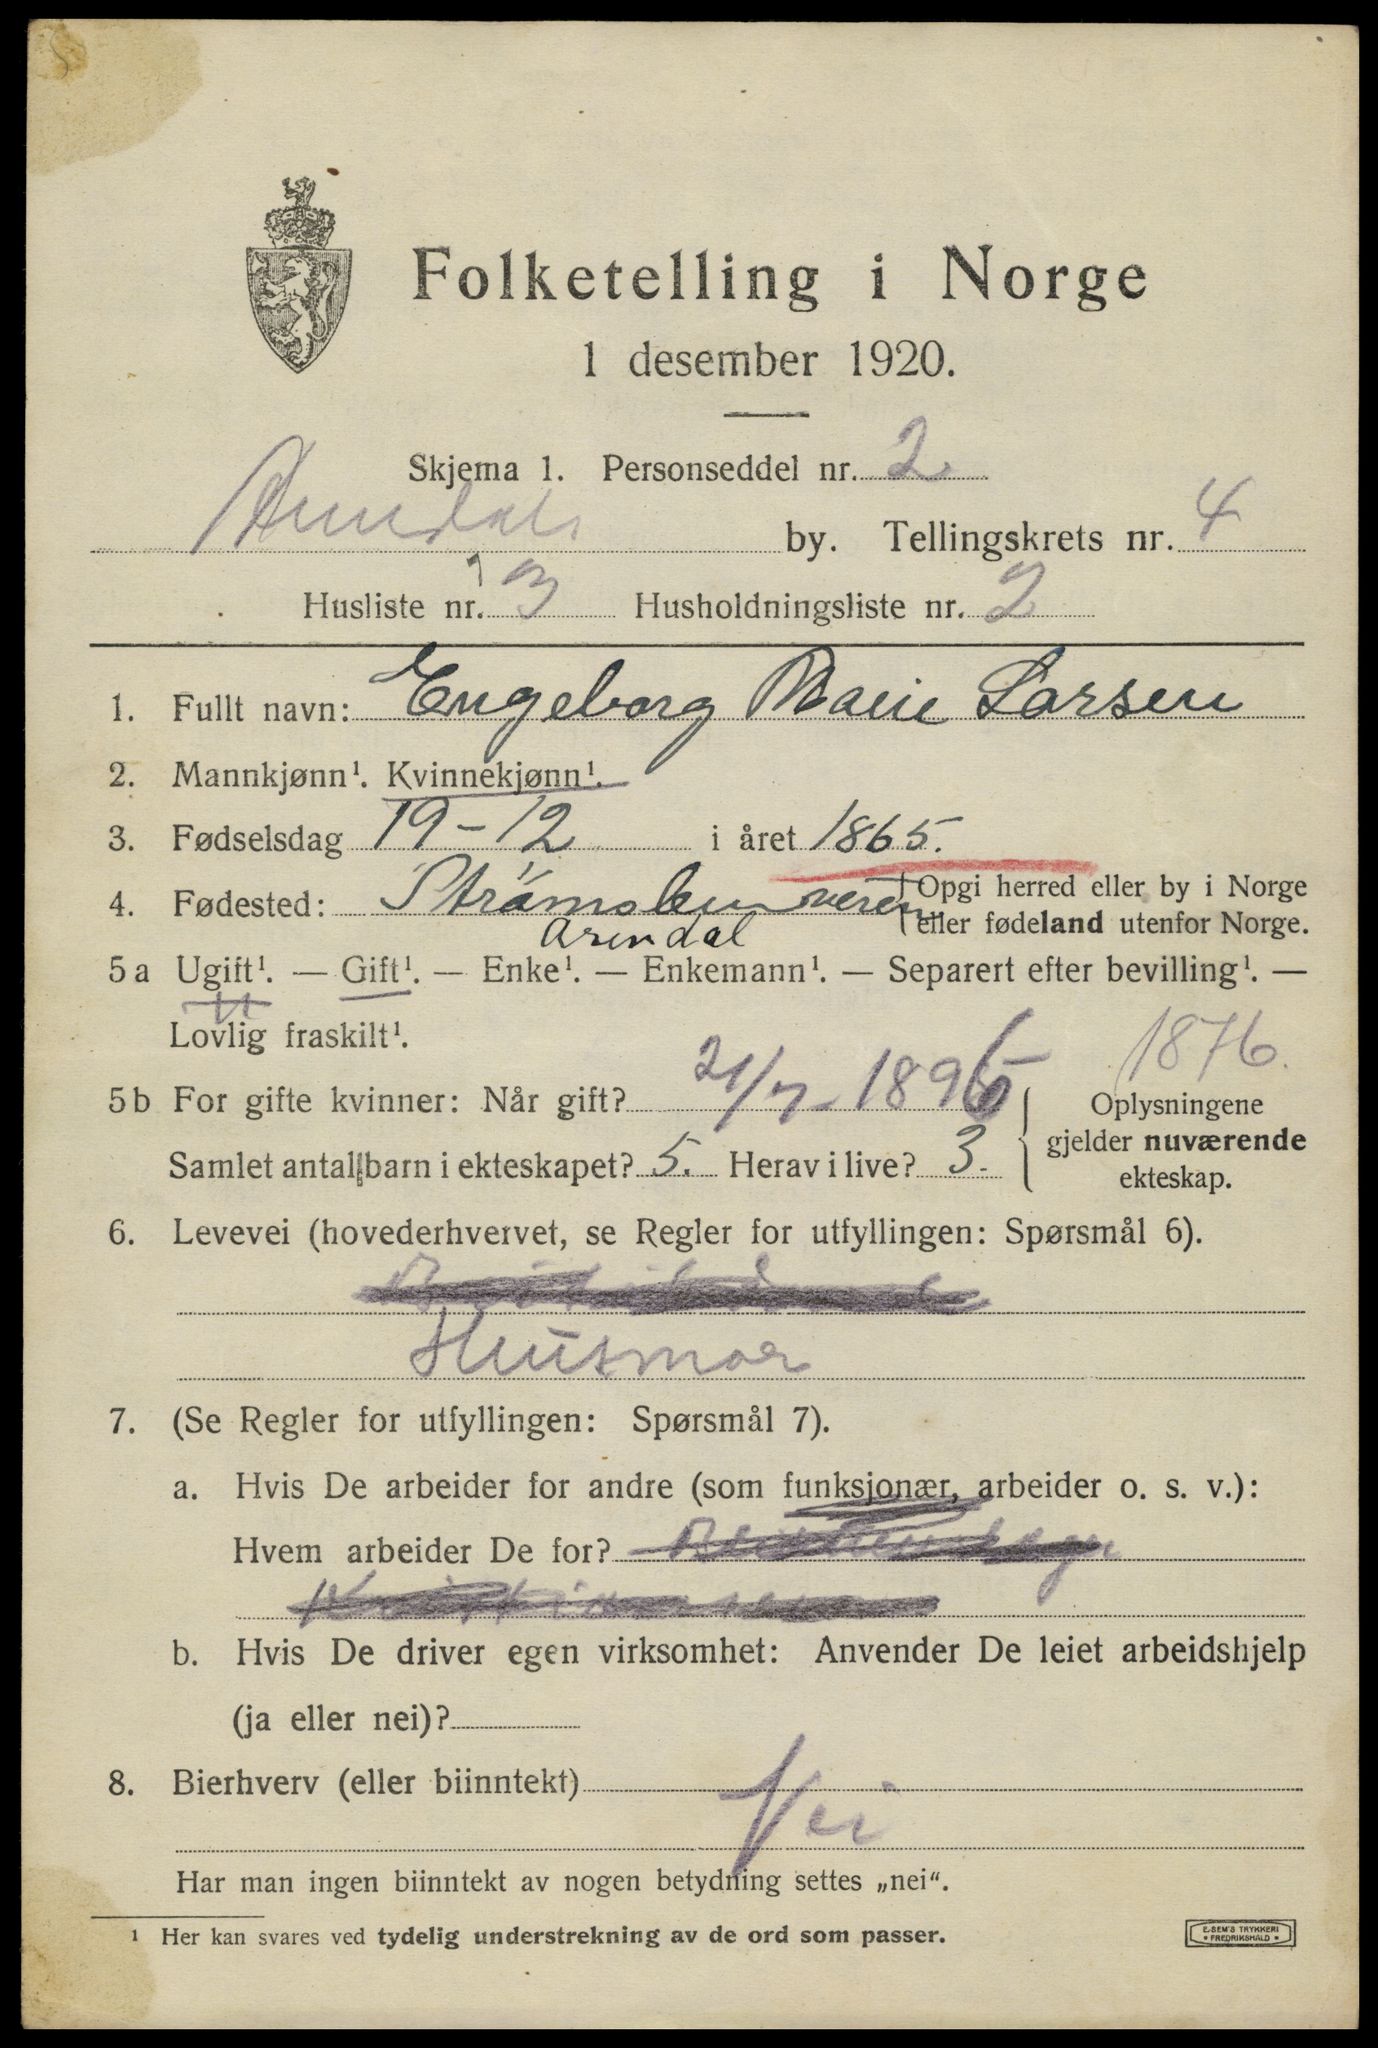 Folketelling i Norge
1 desember 1920.
Skjema 1. Personseddel nr. 2
Arendals by. Tellingskrets nr. 4
Husliste nr. 3 Husholdningsliste nr. 2
1. Fullt navn: Engeborg Marie Larsen
2. Mannkjønn¹. Kvinnekjønn¹.
3. Fødselsdag 19-12 i året 1865.
4. Fødested: Strömsbu Opgi herred eller by i Norge
eller fødeland utenfor Norge.
Arendal
5a Ugift¹. — Gift¹. — Enke¹. — Enkemann¹. — Separert efter bevilling¹. —
Lovlig fraskilt¹.
1876.
5b For gifte kvinner: Når gift? 21/7-1896 Oplysningene
gjelder nuværende
ekteskap.
Samlet antal barn i ekteskapet? 5. Herav i live? 3.
6. Levevei (hovederhvervet, se Regler for utfyllingen: Spørsmål 6).
Husmor
7. (Se Regler for utfyllingen: Spørsmål 7).
a. Hvis De arbeider for andre (som funksjonær, arbeider o. s. v.):
Hvem arbeider De for?
b. Hvis De driver egen virksomhet: Anvender De leiet arbeidshjelp
(ja eller nei)?
8. Bierhverv (eller biinntekt)
Nei
Har man ingen biinntekt av nogen betydning settes „nei“.
¹ Her kan svares ved tydelig understrekning av de ord som passer.
E. SEM'S TRYKKERI
• FREDRIKSHALD •